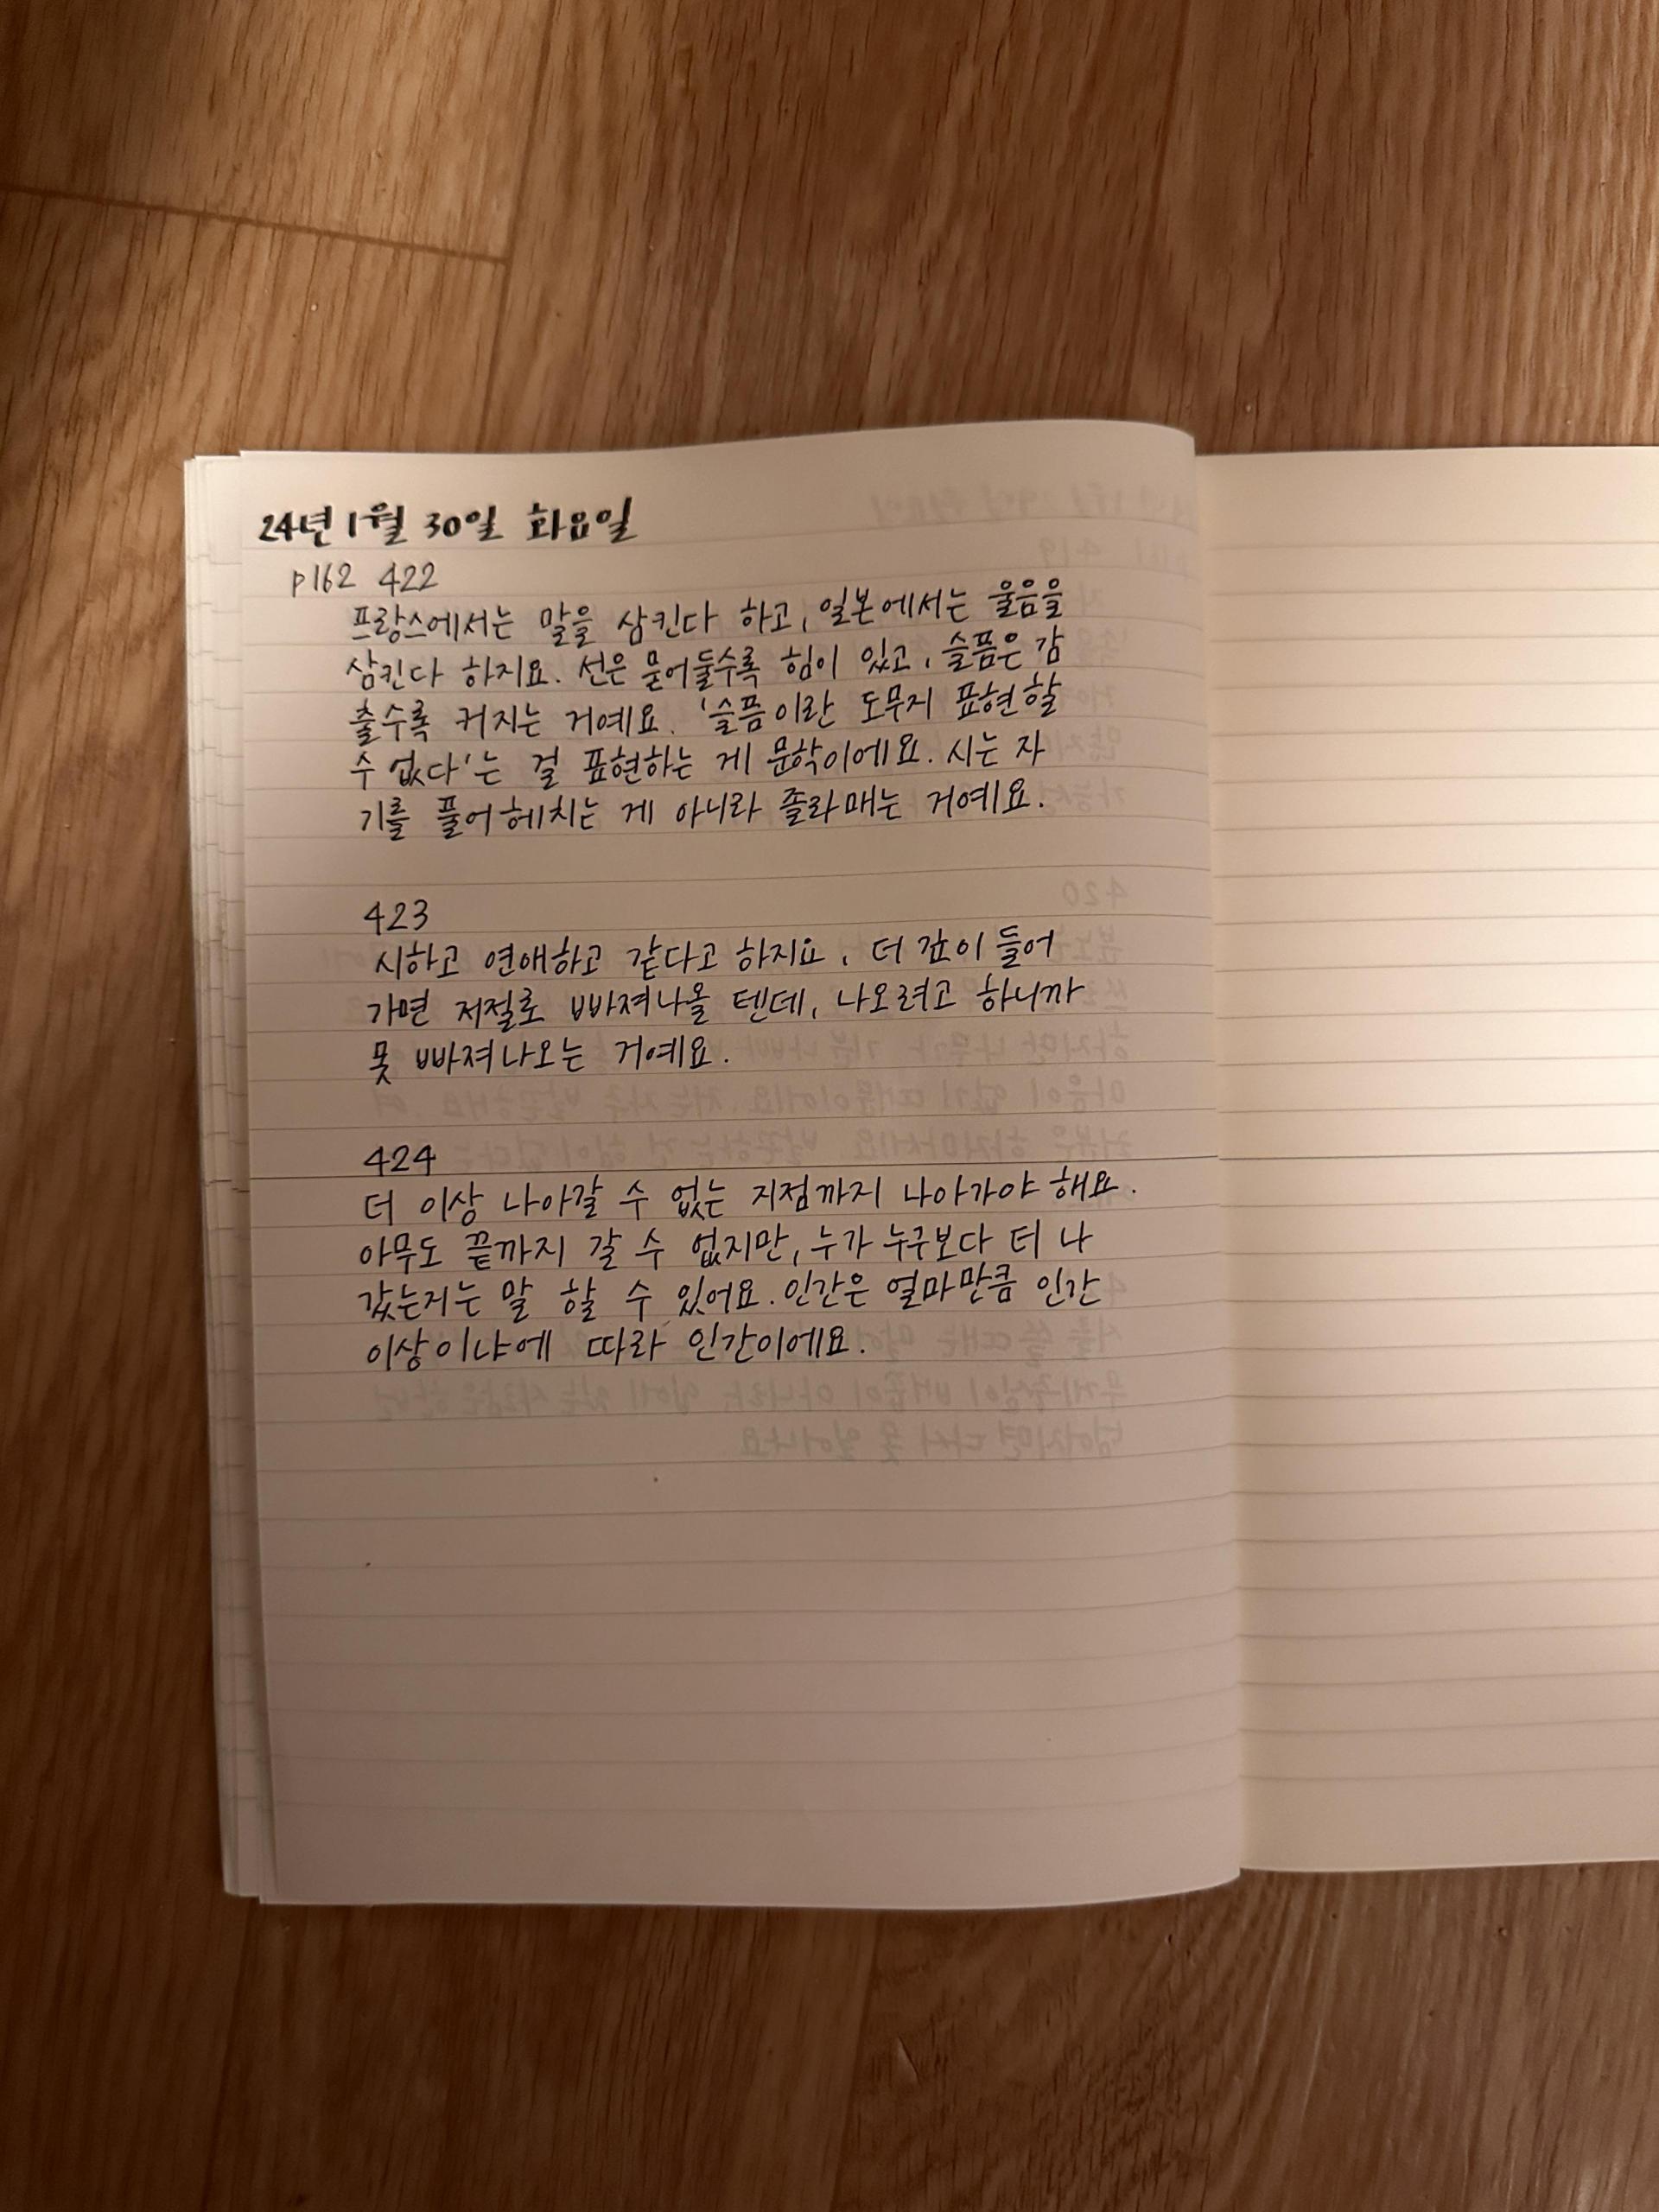 24년 1월 30일 화요일
p162 422
프랑스에서는 말을 삼킨다 하고, 일본에서는 울음을
삼킨다 하지요. 선은 묻어둘수록 힘이 있고, 슬픔은 감
출수록 커지는 거예요. '슬픔이란 도무지 표현할
수 없다'는 걸 표현하는 게 문학이에요. 시는 자
기를 풀어헤치는 게 아니라 졸라매는 거예요.
423
시하고 연애하고 같다고 하지요. 더 깊이 들어
가면 저절로 빠져나올 텐데, 나오려고 하니까
못 빠져나오는 거예요.
424
더 이상 나아갈 수 없는 지점까지 나아가야 해요.
아무도 끝까지 갈 수 없지만, 누가 누구보다 더 나
갔는지는 말 할 수 있어요. 인간은 얼마만큼 인간
이상이냐에 따라 인간이에요.